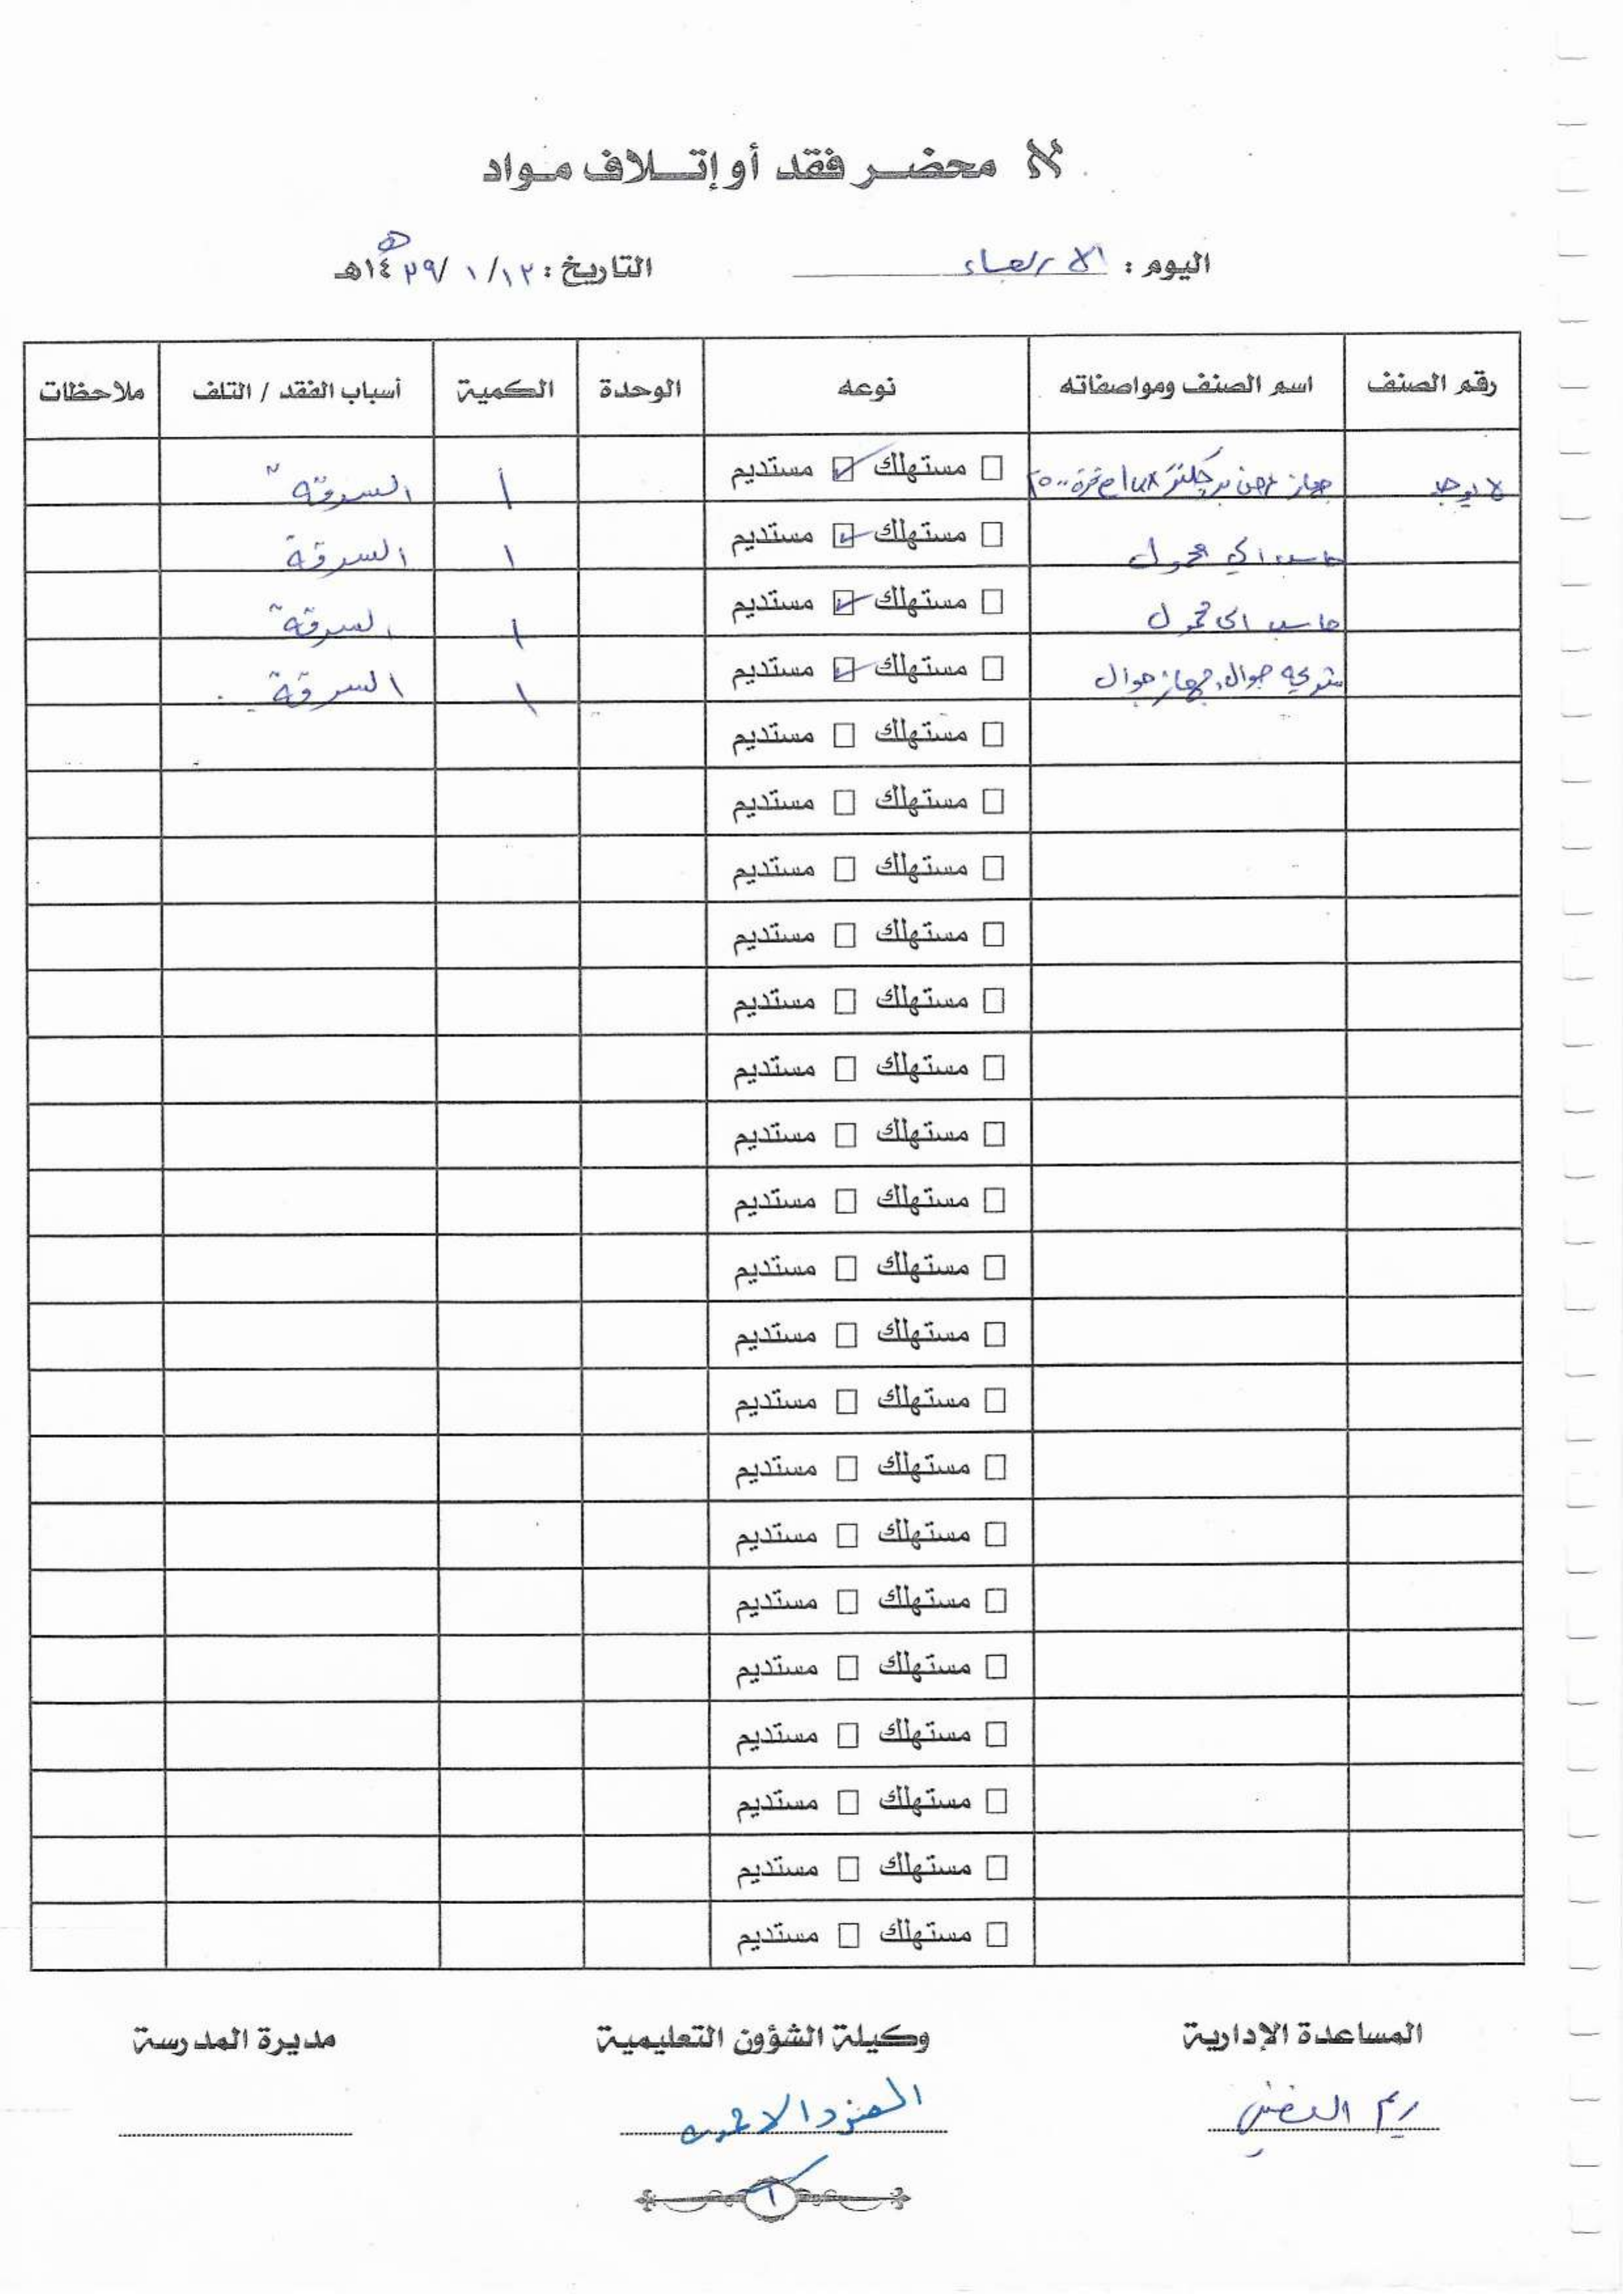 محضر فقد أو إتلاف مواد
اليوم : الاربعاء التاريخ : ١٢ / ١ / ١٤٢٩ هـ
رقم الصنف اسم الصنف ومواصفاته نوعه الوحدة الكمية أسباب الفقد / التلف ملاحظات
لا يوجد جهاز عرض □ مستهلك ☑ مستديم ١ السرقة
حاسب الي محمول □ مستهلك ☑ مستديم ١ السرقة
حاسب الي محمول □ مستهلك ☑ مستديم ١ السرقة
شريحه جوال وجهاز جوال □ مستهلك ☑ مستديم ١ السرقة
□ مستهلك □ مستديم
□ مستهلك □ مستديم
□ مستهلك □ مستديم
□ مستهلك □ مستديم
□ مستهلك □ مستديم
□ مستهلك □ مستديم
□ مستهلك □ مستديم
□ مستهلك □ مستديم
□ مستهلك □ مستديم
□ مستهلك □ مستديم
□ مستهلك □ مستديم
□ مستهلك □ مستديم
□ مستهلك □ مستديم
□ مستهلك □ مستديم
□ مستهلك □ مستديم
□ مستهلك □ مستديم
□ مستهلك □ مستديم
□ مستهلك □ مستديم
□ مستهلك □ مستديم
المساعدة الإدارية وكيلة الشؤون التعليمية مديرة المدرسة
ريم
١